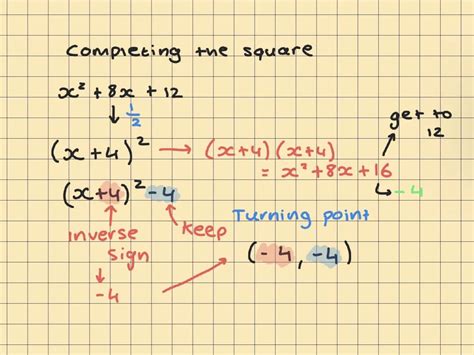 completing the square
x² + 8x + 12
↓ ½
(x+4)² → (x+4)(x+4)
= x² + 8x + 16
get to
12
-4
(x+4)² -4
inverse
sign
-4
keep
Turning point
(-4, -4)